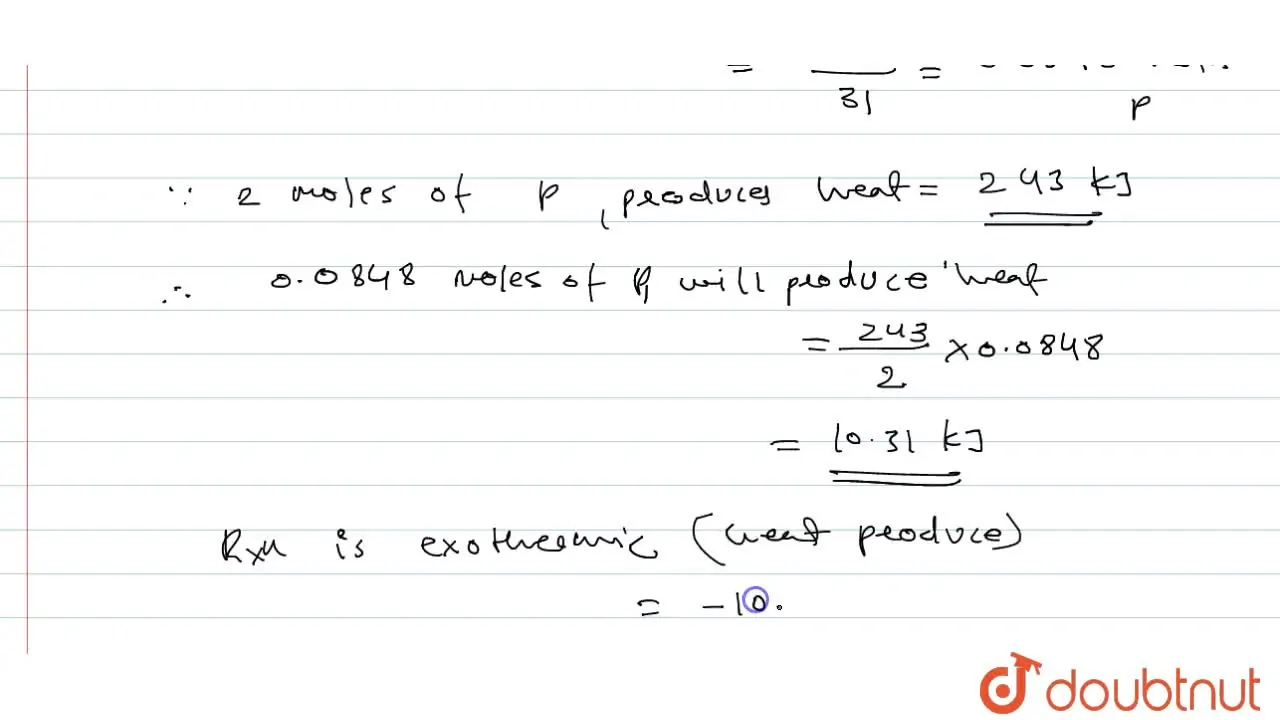 = — / 31 =
P
∵ 2 moles of P, produces heat = 243 kJ
∴ 0.0848 moles of P, will produce heat
= 243/2 × 0.0848
= 10.31 kJ
Rxn is exothermic (heat produce)
= -10.
doubtnut